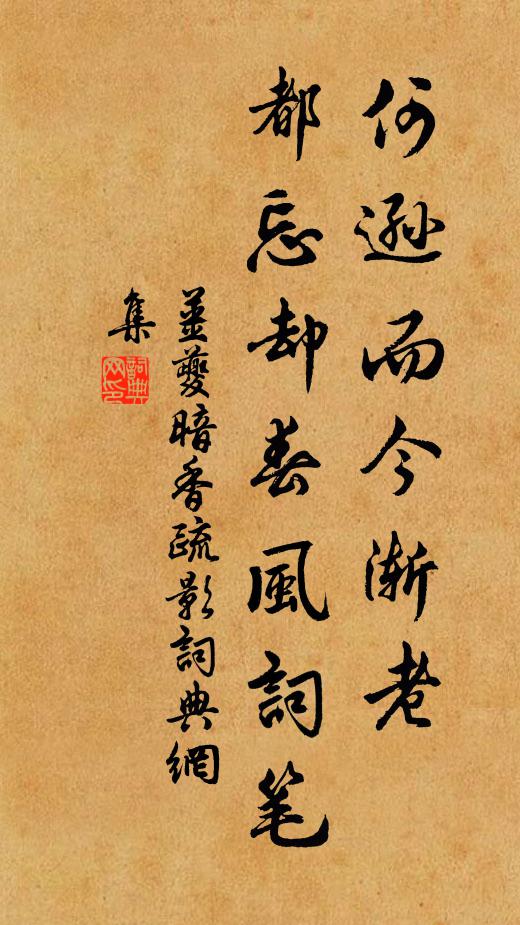 何遜而今渐老
都忘却春風詞笔
姜夔暗香疏影詞典網
集
詞典
网印